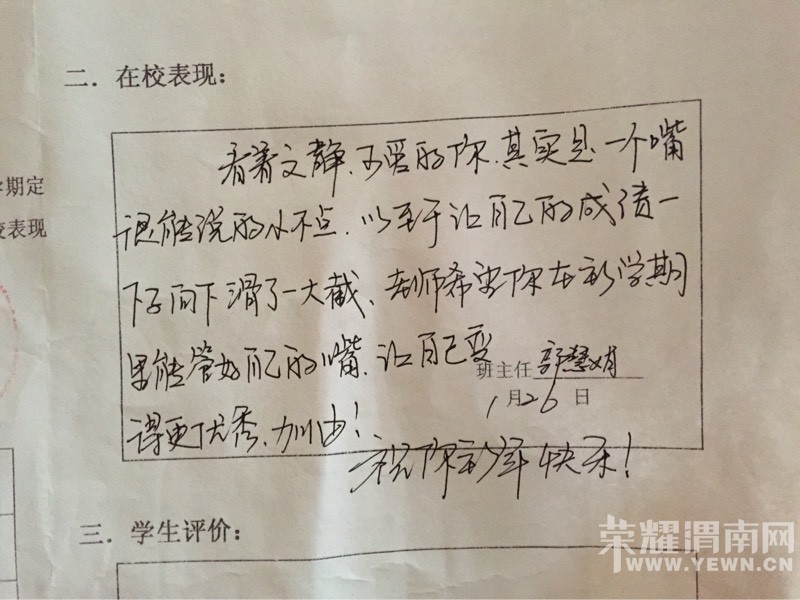 二．在校表现：
看着文静、可爱的你，其实是一个嘴
很能说的小不点，以至于让自己的成绩一
下子向下滑了一大截，老师希望你在新学期
里能管好自己的嘴，让自己变
班主任 郭慧娟
得更优秀，加油！
1月26日
祝你新年快乐！
三．学生评价：
学期定
校表现
荣耀渭南网
WWW.YEWN.CN